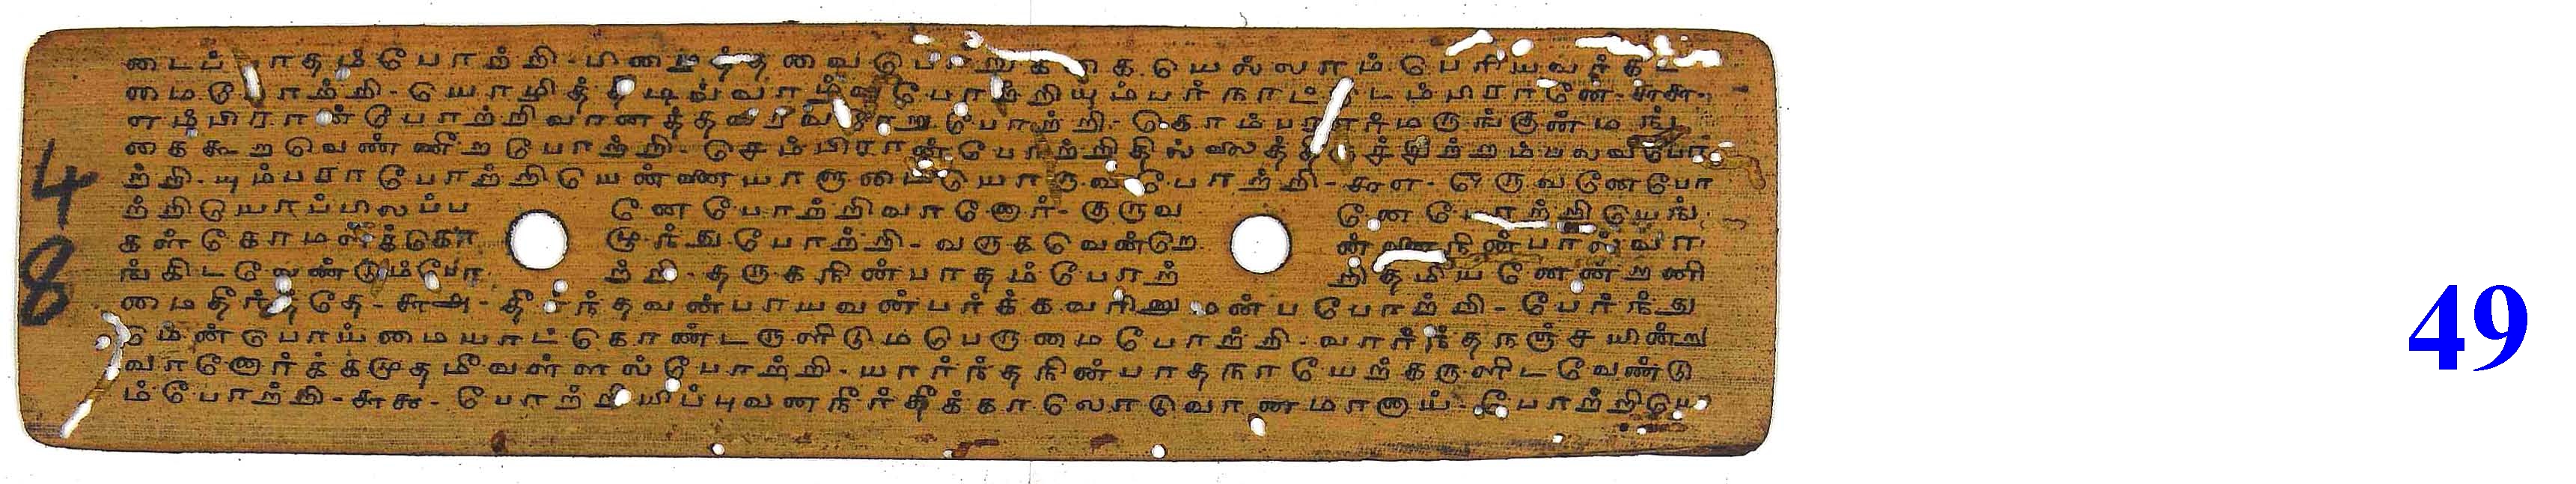 டைப் பாதம் போற்றி - பிழைத்தவை பொறுக்கை யெல்லாம் பெரியவர் கட
மை போற்றி - யொழித்திடிவ்வாழ்வு போற்றியும்பர் நாட்டெம்பிரானே - சுசு -
எம்பிரான் போற்றி வானத்தவரவரேறு போற்றி - கொம்பரார் மருங்குன் மங்
கை கூறவெண்ணீற போற்றி - செம்பிரான் போற்றி தில்லைத் திருச்சிற்றம்பலவ போ
ற்றி - யும்பரா போற்றி யென்னையாளுடையொருவ போற்றி - சுஎ - ஒருவனே போ
ற்றி யொப்பிலப்ப னே போற்றி வானோர் - குருவ னே போற்றி யெங்
கள் கோமளக் கொ ழுந்து போற்றி - வருகவென்றெ ன்னை நின்பால் வா
ங்கிட வேண்டும் போ ற்றி - தருக நின் பாதம் போற் றி தமியனேன் றனி
மை தீர்த்தே - சுஅ - தீர்ந்தவன்பாயவன்பர்க்கவரினுமன்ப போற்றி - பேர்ந்து
மென் பொய்மை யாட்கொண்டருளிடும் பெருமை போற்றி - வார்ந்த நஞ்சயின்று
வானோர்க்கமுதமீ வள்ளல் போற்றி - யார்ந்த நின் பாத நாயேற்கருளிட வேண்டு
ம் போற்றி - சுகூ - போற்றி யிப்புவன நீர் தீக்காலொடு வானமானாய் - போற்றி யெ
48
49